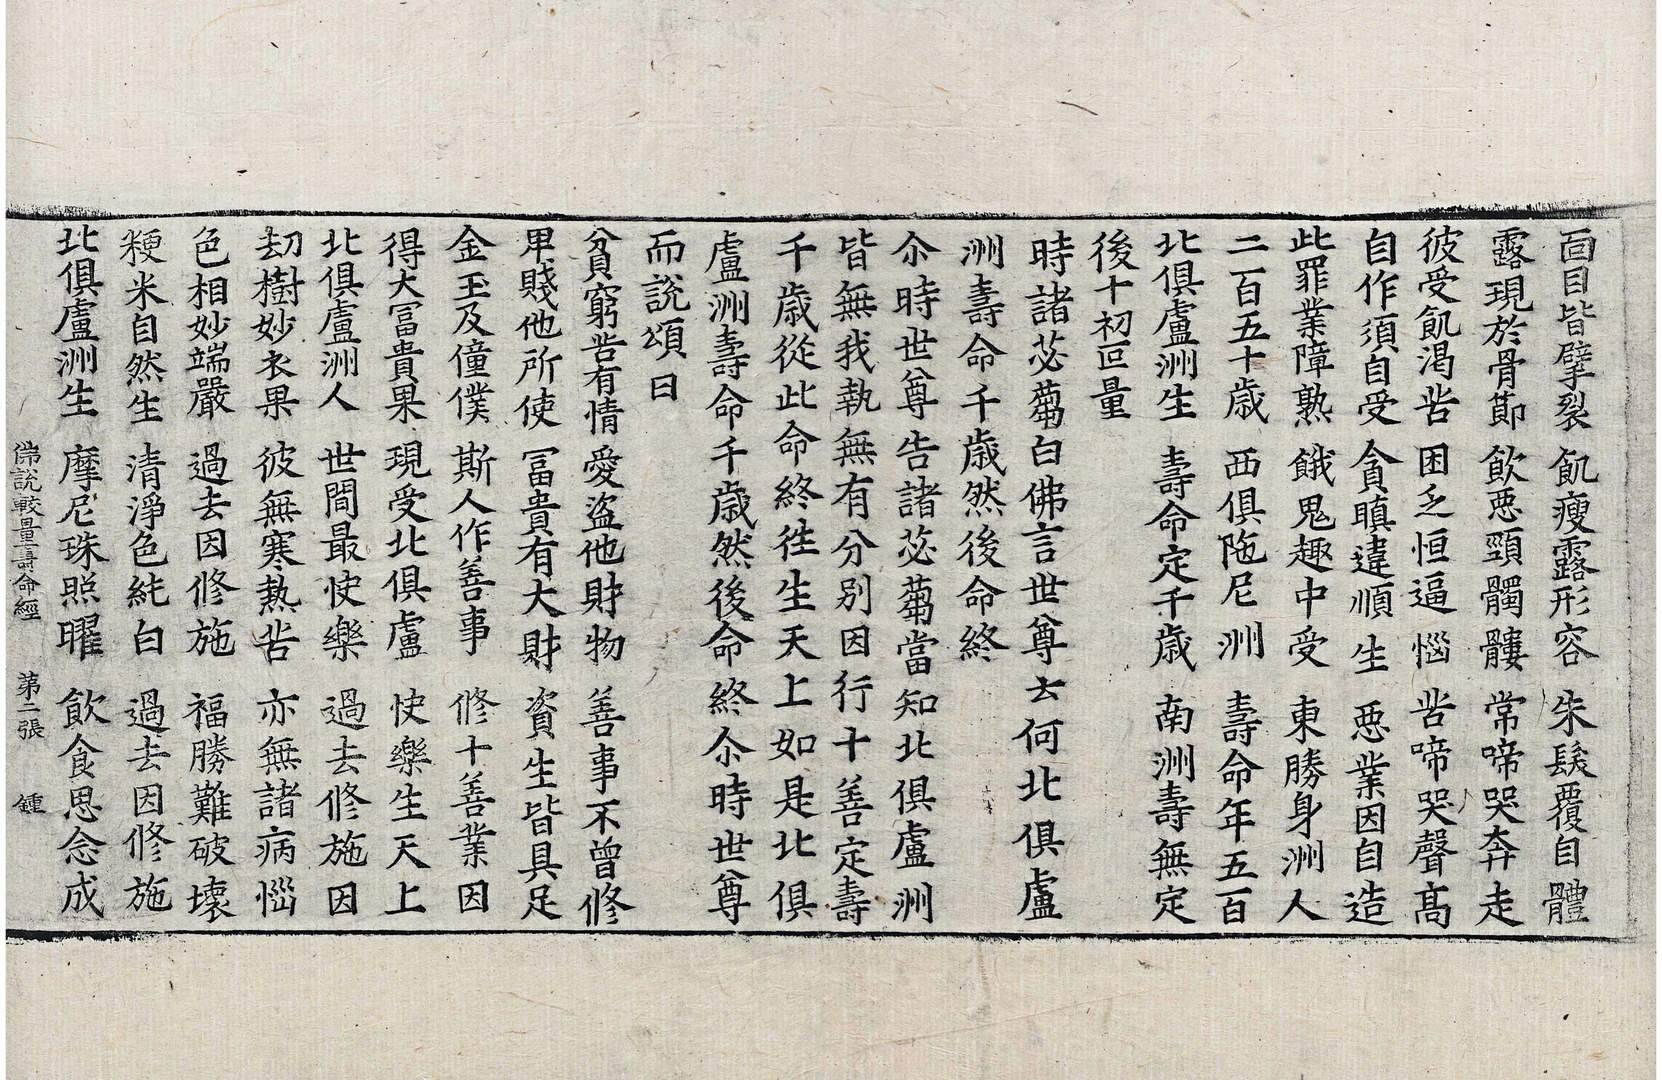 面目皆擘裂 飢瘦露形容 朱髮覆自體
露現於骨節 飲惡頸髑髏 常啼哭奔走
彼受飢渴苦 困乏恒逼惱 苦啼哭聲髙
自作須自受 貪瞋違順生 惡業因自造
此罪業障熟 餓鬼趣中受 東勝身洲人
二百五十歳 西俱陁尼洲 壽命年五百
北俱盧洲生 壽命定千歳 南洲壽無定
後十初叵量
時諸苾蒭白佛言世尊云何北俱盧
洲壽命千歳然後命終
尒時世尊告諸苾蒭當知北俱盧洲
皆無我執無有分别因行十善定壽
千歳從此命終徃生天上如是北俱
盧洲壽命千歳然後命終尒時世尊
而說頌曰
貧窮苦有情 愛盗他財物 善事不曾修
卑賤他所使 冨貴有大財 資生皆具足
金玉及僮僕 斯人作善事 修十善業因
得大冨貴果 現受北俱盧 快樂生天上
北俱盧洲人 世間最快樂 過去修施因
劫樹妙衣果 彼無寒熱苦 亦無諸病惱
色相妙端嚴 過去因修施 福勝難破壞
粳米自然生 清淨色純白 過去因修施
北俱盧洲生 摩尼珠照曜 飲食思念成
佛說較量壽命經 第二張 鍾